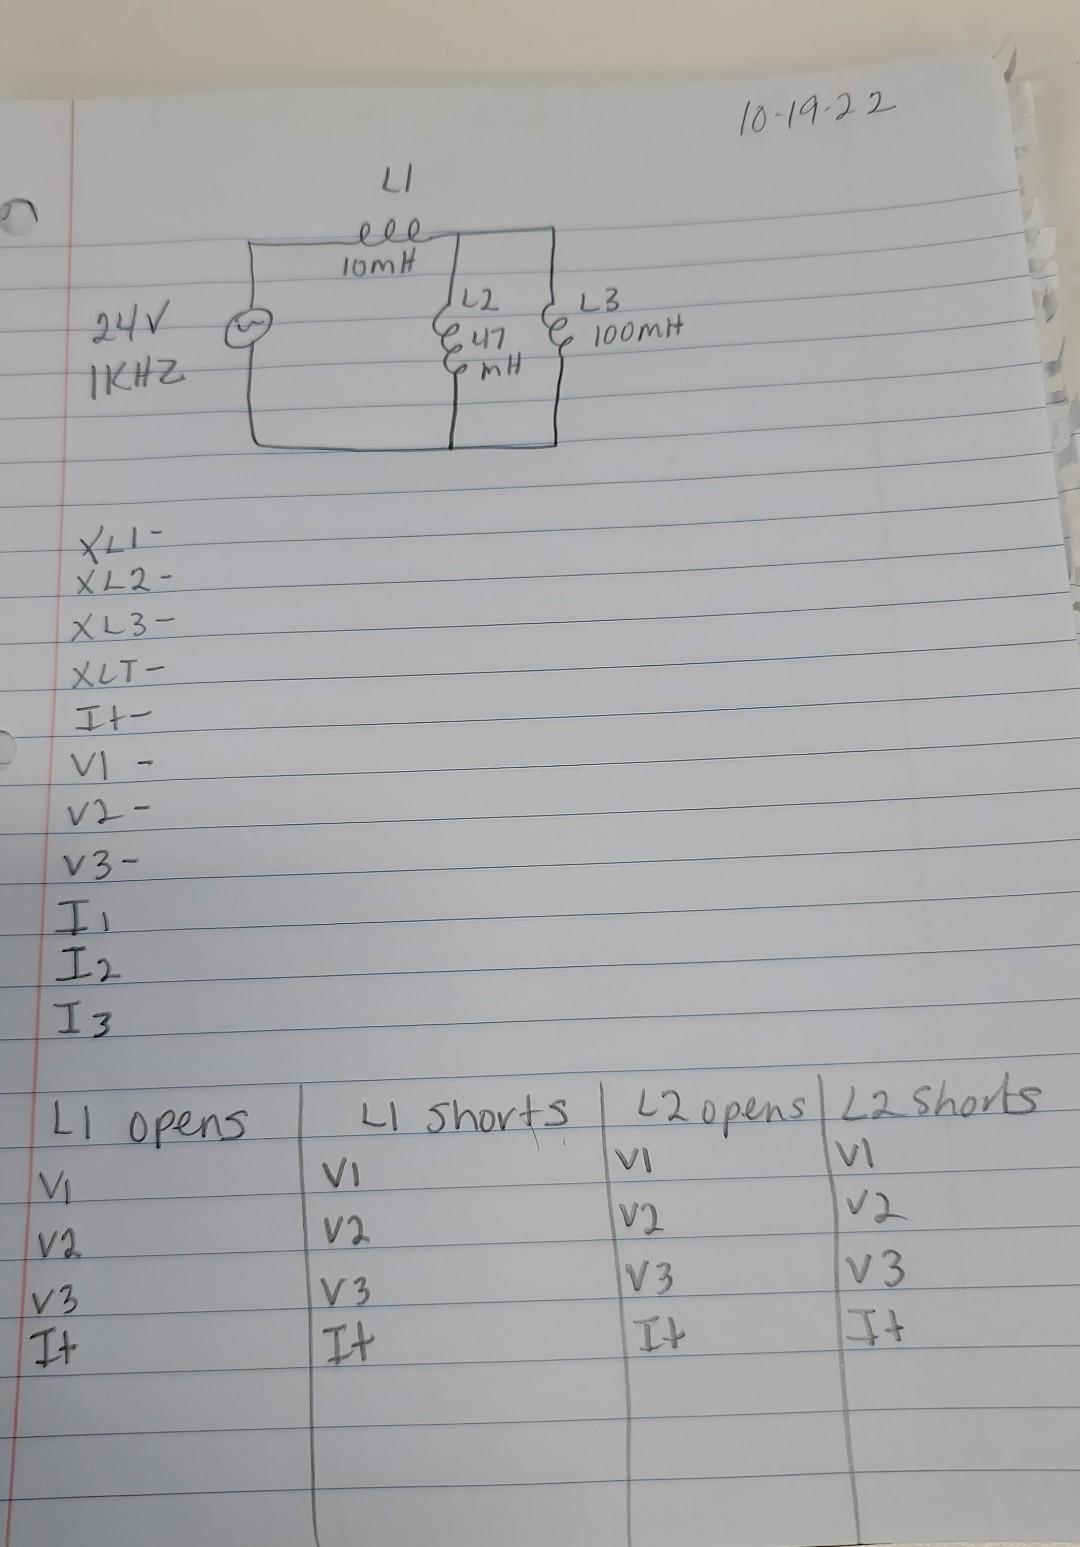 10-19-22
L1
10mH
24V
1KHZ
L2
47
mH
L3
100mH
XL1-
XL2-
XL3-
XLT-
It-
V1 -
V2 -
V3 -
I1
I2
I3
L1 opens
L1 shorts
L2 opens
L2 shorts
V1
V1
V1
V1
V2
V2
V2
V2
V3
V3
V3
V3
It
It
It
It